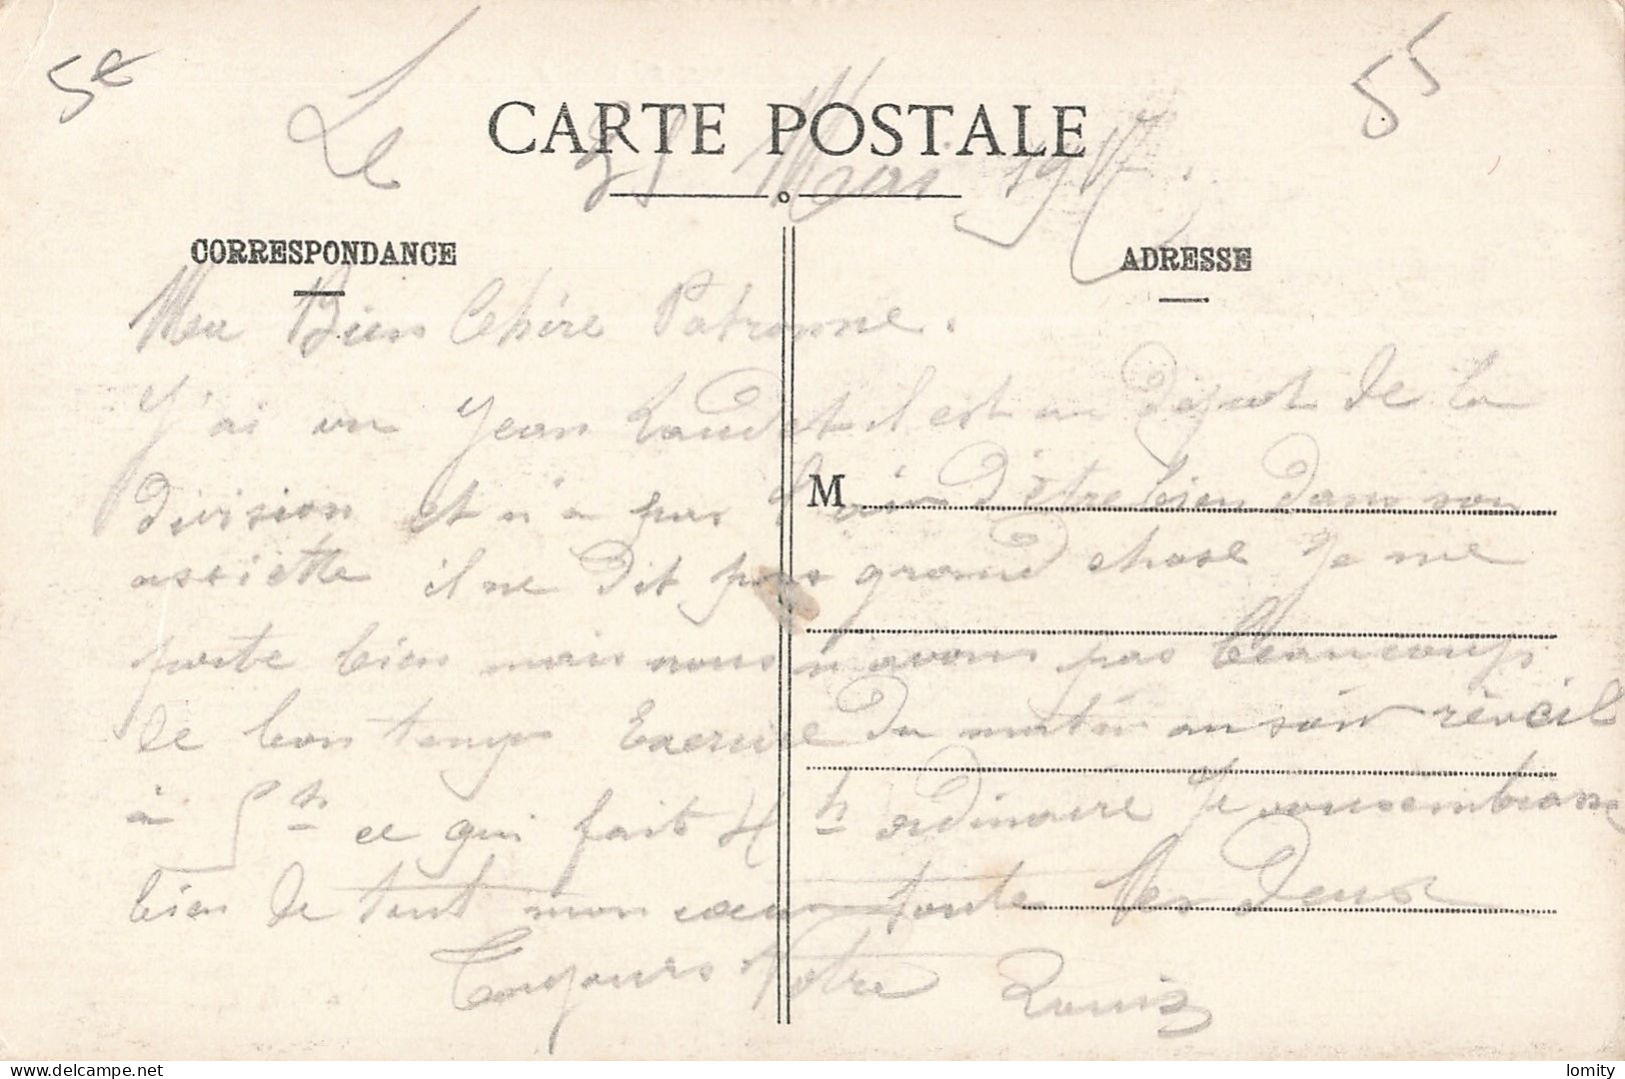 5€
55
CARTE POSTALE
Le 31 Mai 1917.
CORRESPONDANCE
ADRESSE
Ma Bien Chère Patronne.
J'ai vu Jean Laudet il est au dépot de la
M
division et n'a pas l'air d'être bien dans son
assiette il ne dit pas grand chose Je me
porte bien mais nous n'avons pas Beaucoup
de bon temps Exercice du matin au soir réveil
à 5h ce qui fait 4h ordinaire Je vous embrasse
bien de tout mon cœur toute les deux
Toujours Votre Louis
delcampe.net
lomity